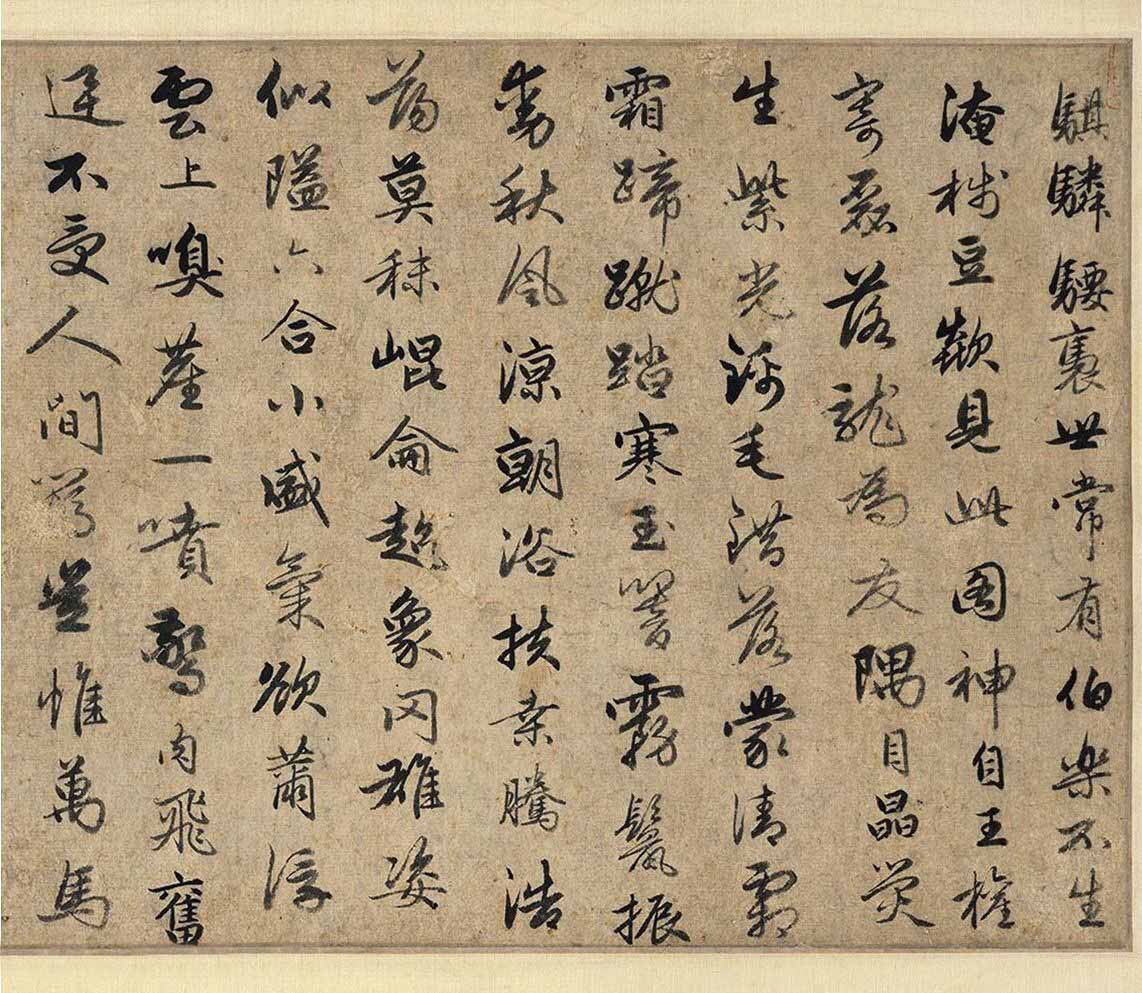 騏驎騕褭世常有伯樂不生
淹棧豆歘見此圖神自王權
奇磊落龍為友隅目晶熒
生紫光疎毛錯落蒙清霜
霜蹄蹴踏寒玉響霧鬣振
動秋風涼朝浴扶桑騰浩
蕩莫秣崐侖超象罔雄姿
似隘六合小盛氣欲薾浮
雲上嗅塵一噴驚肉飛奮
迅不受人間豈惟萬馬